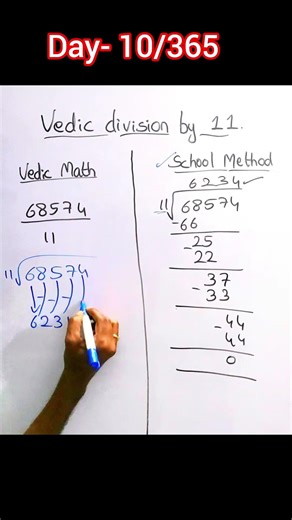 Day- 10/365
Vedic division by 11.
Vedic Math
68574
11
11√68574
- - -
623
✓School Method
6234✓
11√68574
-66
-25
22
-37
-33
-44
44
0